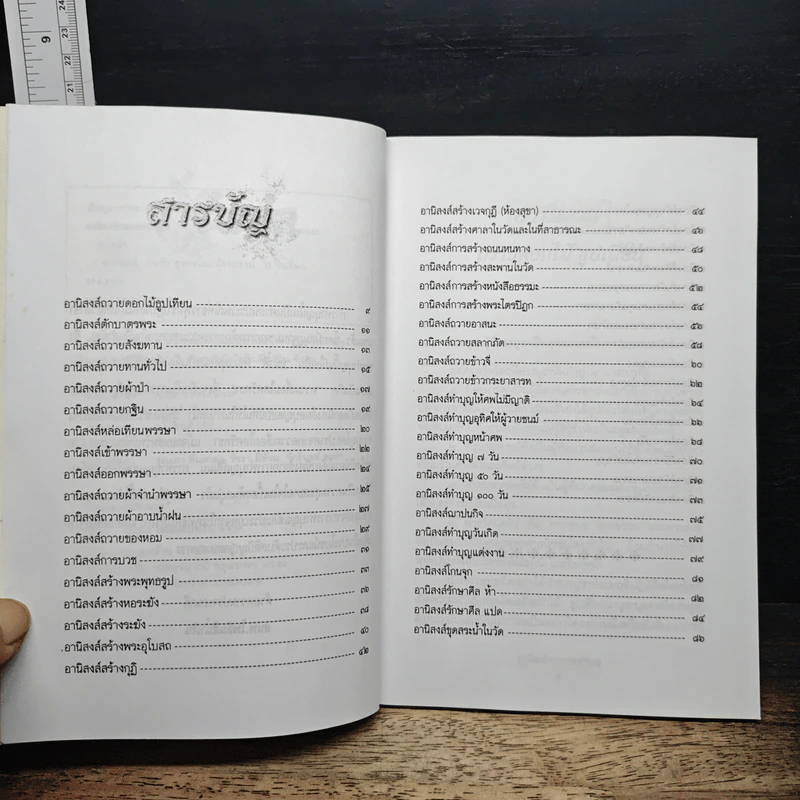 9
24
23
22
21
สารบัญ
อานิสงส์ถวายดอกไม้ธูปเทียน ๙
อานิสงส์ตักบาตรพระ ๑๑
อานิสงส์ถวายสังฆทาน ๑๓
อานิสงส์ถวายทานทั่วไป ๑๕
อานิสงส์ถวายผ้าป่า ๑๗
อานิสงส์ถวายกฐิน ๑๙
อานิสงส์หล่อเทียนพรรษา ๒๐
อานิสงส์เข้าพรรษา ๒๒
อานิสงส์ออกพรรษา ๒๔
อานิสงส์ถวายผ้าจำนำพรรษา ๒๕
อานิสงส์ถวายผ้าอาบน้ำฝน ๒๗
อานิสงส์ถวายของหอม ๒๙
อานิสงส์การบวช ๓๑
อานิสงส์สร้างพระพุทธรูป ๓๓
อานิสงส์สร้างหอระฆัง ๓๖
อานิสงส์สร้างระฆัง ๓๘
อานิสงส์สร้างพระอุโบสถ ๔๐
อานิสงส์สร้างกุฏิ ๔๒
อานิสงส์สร้างเวจกุฎี (ห้องสุขา) ๔๔
อานิสงส์สร้างศาลาในวัดและในที่สาธารณะ ๔๖
อานิสงส์การสร้างถนนหนทาง ๔๘
อานิสงส์การสร้างสะพานในวัด ๕๐
อานิสงส์การสร้างหนังสือธรรมะ ๕๒
อานิสงส์การสร้างพระไตรปิฎก ๕๔
อานิสงส์ถวายอาสนะ ๕๖
อานิสงส์ถวายสลากภัต ๕๘
อานิสงส์ถวายข้าวจี่ ๖๐
อานิสงส์ถวายข้าวกระยาสารท ๖๒
อานิสงส์ทำบุญให้ศพไม่มีญาติ ๖๔
อานิสงส์ทำบุญอุทิศให้ผู้วายชนม์ ๖๖
อานิสงส์ทำบุญหน้าศพ ๖๘
อานิสงส์ทำบุญ ๗ วัน ๗๐
อานิสงส์ทำบุญ ๕๐ วัน ๗๑
อานิสงส์ทำบุญ ๑๐๐ วัน ๗๓
อานิสงส์ฌาปนกิจ ๗๕
อานิสงส์ทำบุญวันเกิด ๗๗
อานิสงส์ทำบุญแต่งงาน ๗๙
อานิสงส์โกนจุก ๘๑
อานิสงส์รักษาศีล ห้า ๘๒
อานิสงส์รักษาศีล แปด ๘๔
อานิสงส์ขุดสระน้ำในวัด ๘๖